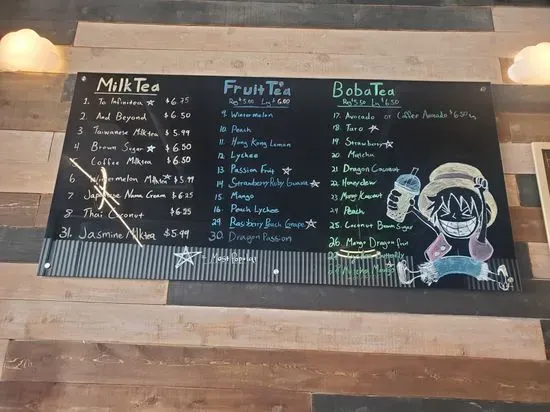 Milk Tea
1. To Infinitea $6.75
2. And Beyond $6.50
3. Taiwanese Milktea $5.99
4 Brown Sugar $6.50
Coffee Milktea $6.50
6. Wintermelon Milktea $5.99
7 Nana Cream $6.25
8. Thai Coconut $6.25
31. Jasmine Milktea $5.99
= Most Popular
Fruit Tea
Rg $5.00 Lg $6.00
9. Wintermelon
10. Peach
11. Hong Kong Lemon
12. Lychee
13 Passion Fruit
14 Strawberry Ruby Guava
15. Mango
16. Peach Lychee
29 Raspberry Peach Grape
30. Dragon Passion
Boba Tea
Rg $5.50 Lg $6.50
17. Avocado or Coffee Avocado $6.50
18. Taro
19. Strawberry
20. Matcha
21 Dragon Coconut
22. Honeydew
23 Mango Coconut
24 Peach
25. Coconut Brown Sugar
26. Mango Dragon fruit
27 Butterfly
Mango